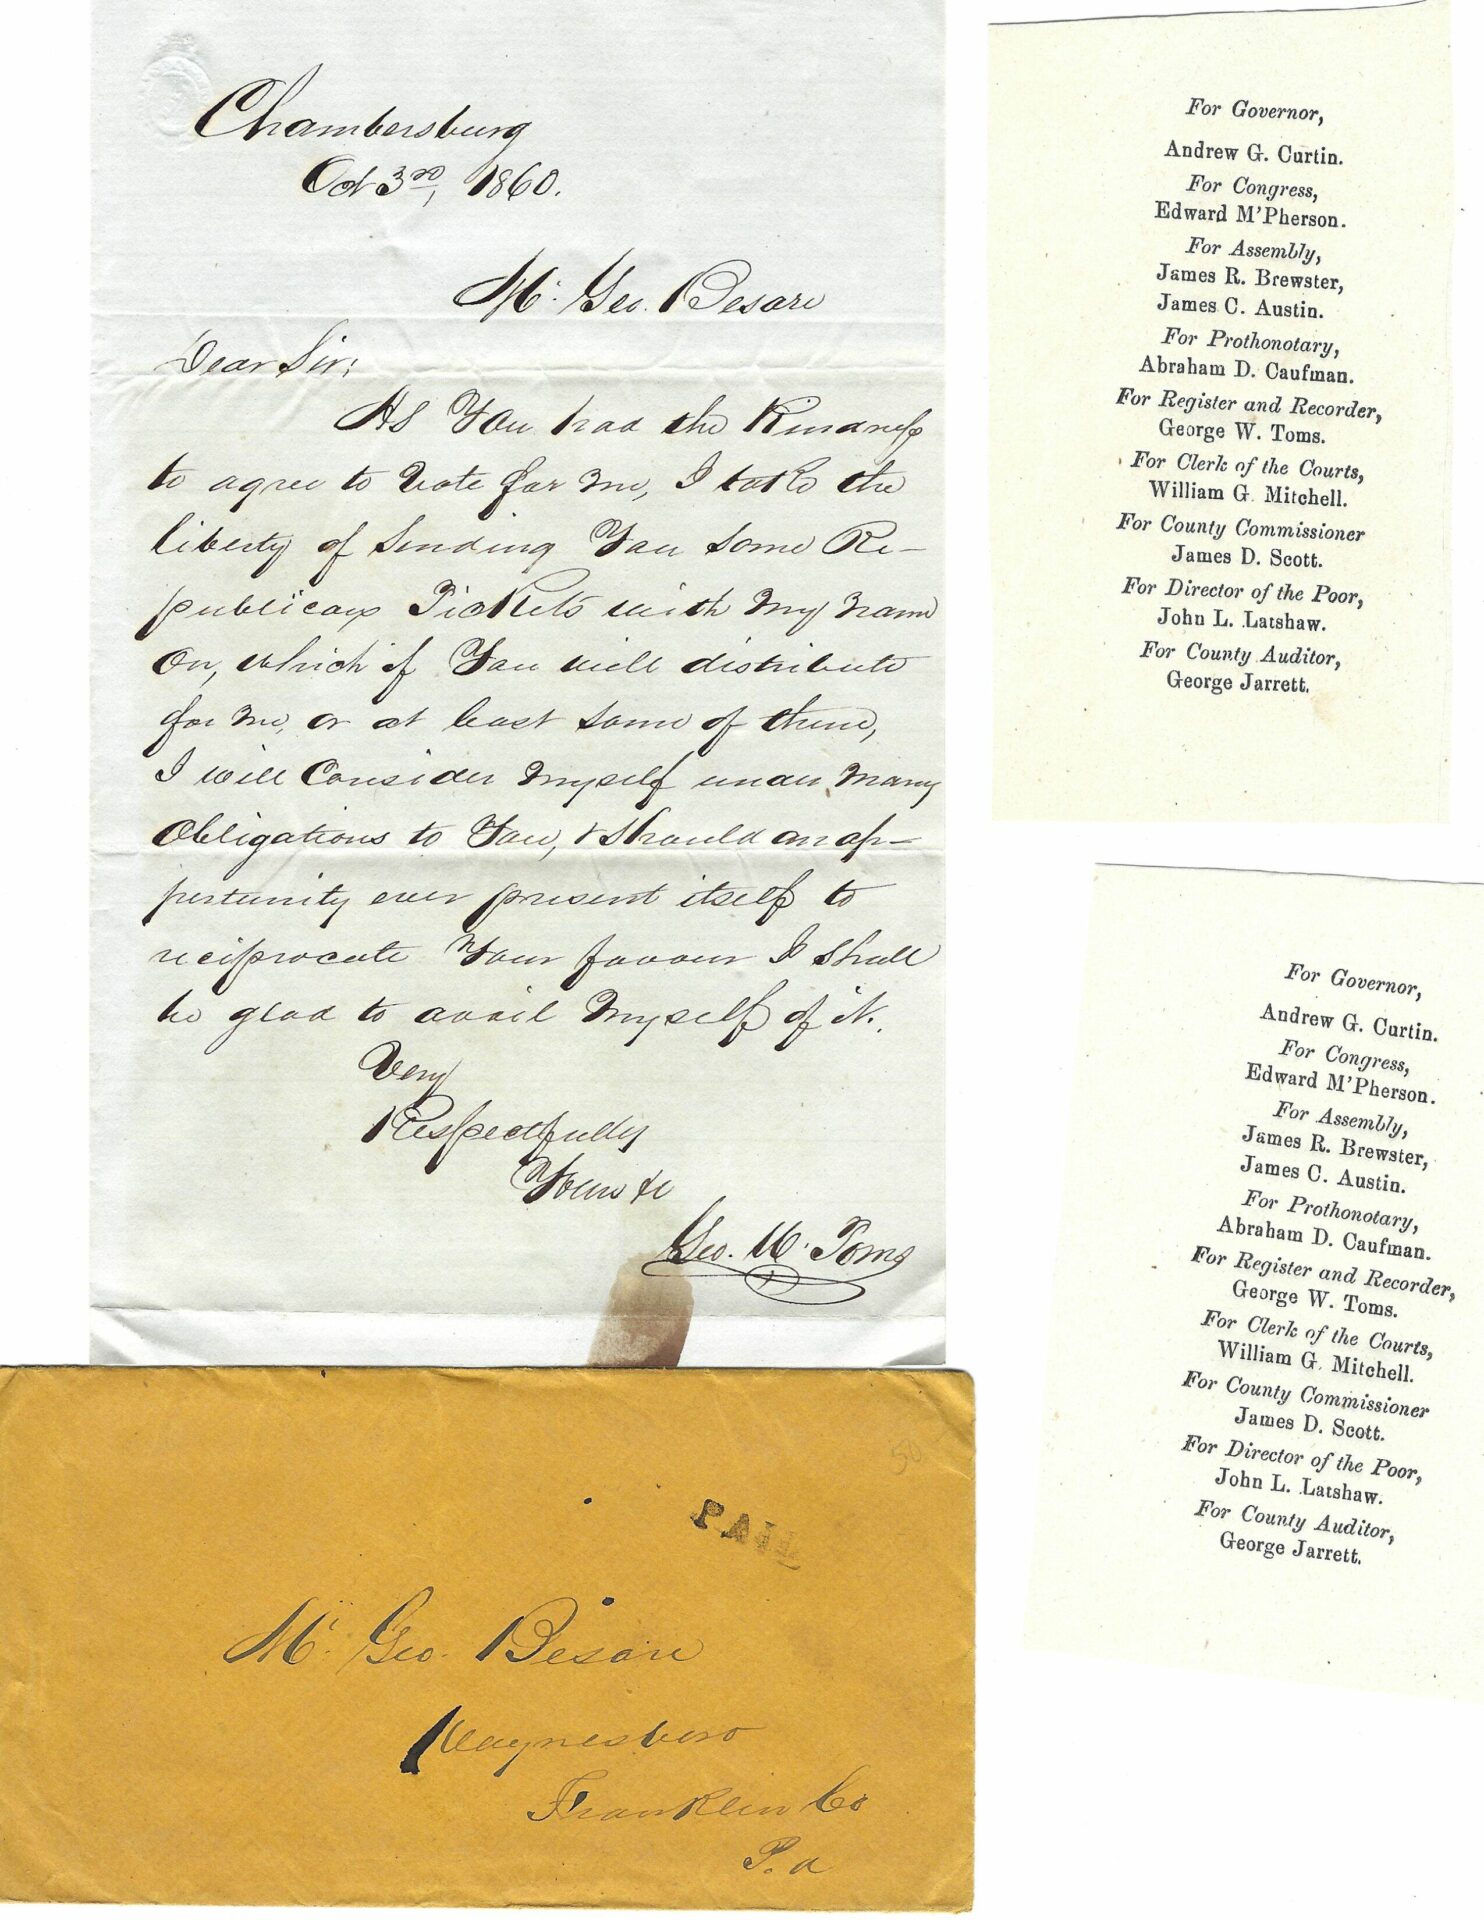 Chambersburg
Oct 3rd, 1860.
Mr. Geo. Besore
Dear Sir;
As You had the Kindness
to agree to Vote for me, I take the
liberty of Sending You some Re-
publican Tickets with my name
On, which if You will distribute
for me, or at least some of them,
I will Consider Myself under Many
Obligations to You, & should an op-
pertunity ever present itself to
reciprocate Your favour I shall
be glad to avail Myself of it.
Very
Respectfully
Yours &c
Geo. W. Toms
PAID
50
Mr. Geo. Besore
Waynesboro
Franklin Co
P.a
For Governor,
Andrew G. Curtin.
For Congress,
Edward M'Pherson.
For Assembly,
James R. Brewster,
James C. Austin.
For Prothonotary,
Abraham D. Caufman.
For Register and Recorder,
George W. Toms.
For Clerk of the Courts,
William G. Mitchell.
For County Commissioner
James D. Scott.
For Director of the Poor,
John L. Latshaw.
For County Auditor,
George Jarrett.
For Governor,
Andrew G. Curtin.
For Congress,
Edward M'Pherson.
For Assembly,
James R. Brewster,
James C. Austin.
For Prothonotary,
Abraham D. Caufman.
For Register and Recorder,
George W. Toms.
For Clerk of the Courts,
William G. Mitchell.
For County Commissioner
James D. Scott.
For Director of the Poor,
John L. Latshaw.
For County Auditor,
George Jarrett.